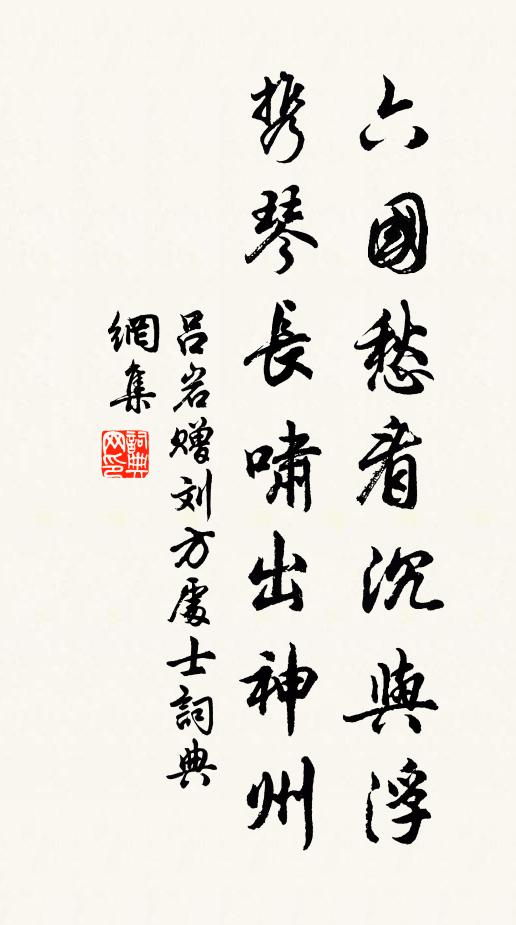 六國愁看沉與浮
携琴長嘯出神州
呂岩赠刘方處士詞典
網集
詞典网印